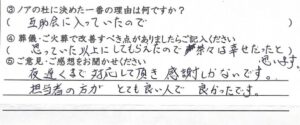 ③ノアの杜に決めた一番の理由は何ですか?
( 互助会に入っていたので )
④葬儀・ご火葬で改善すべき点がありましたらご記入ください
( 思っていた以上にしてもらえたので は幸せだったと思います。 )
⑤ご意見・ご感想をお聞かせください
夜遅くまで対応して頂き感謝しかないです。
担当者の方がとても良い人で良かったです。